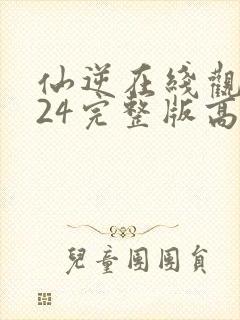 仙逆在线觀
24完整版高
兒童團團員